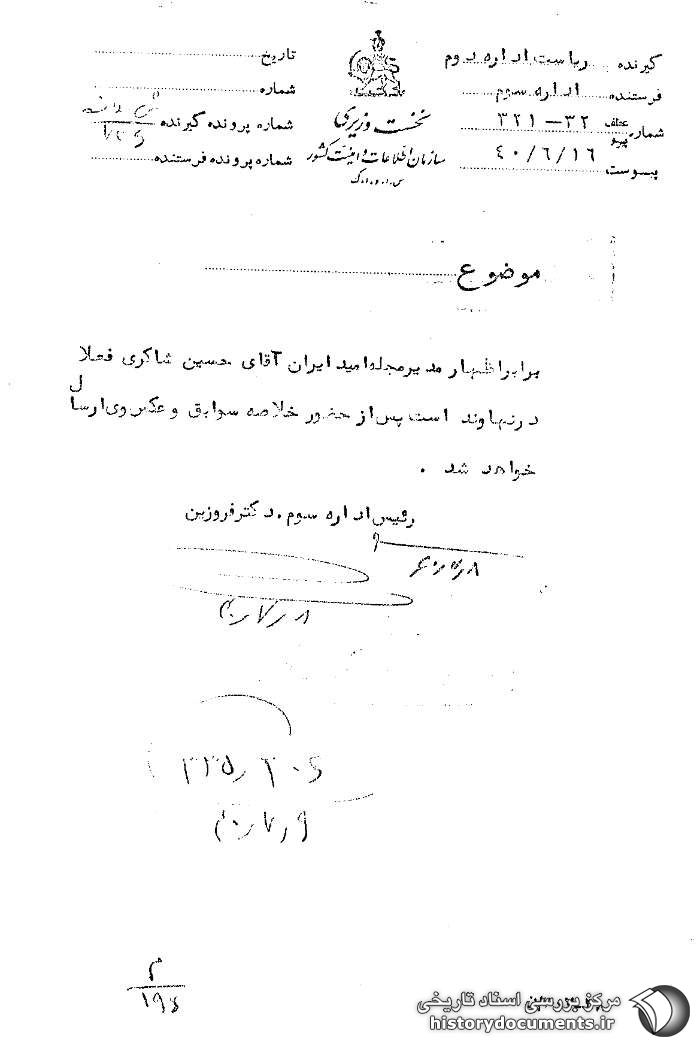 گیرنده ریاست اداره دوم
فرستنده اداره سوم
شماره عطف پیرو ۳۲۱-۳۲
پیوست ۴۰/۶/۱۶
نخست وزیری
سازمان اطلاعات و امنیت کشور
س.ا.و.ا.ک
تاریخ
شماره
شماره پرونده گیرنده
شماره پرونده فرستنده
موضوع
برابر اظهار مدیر مجله امید ایران آقای حسین شاکری فعلا
در نهاوند است پس از حضور خلاصه سوابق و عکس وی ارسال
خواهد شد .
رئیس اداره سوم . دکتر فروزین
۱۹۴
مرکز بررسی اسناد تاریخی
historydocuments.ir